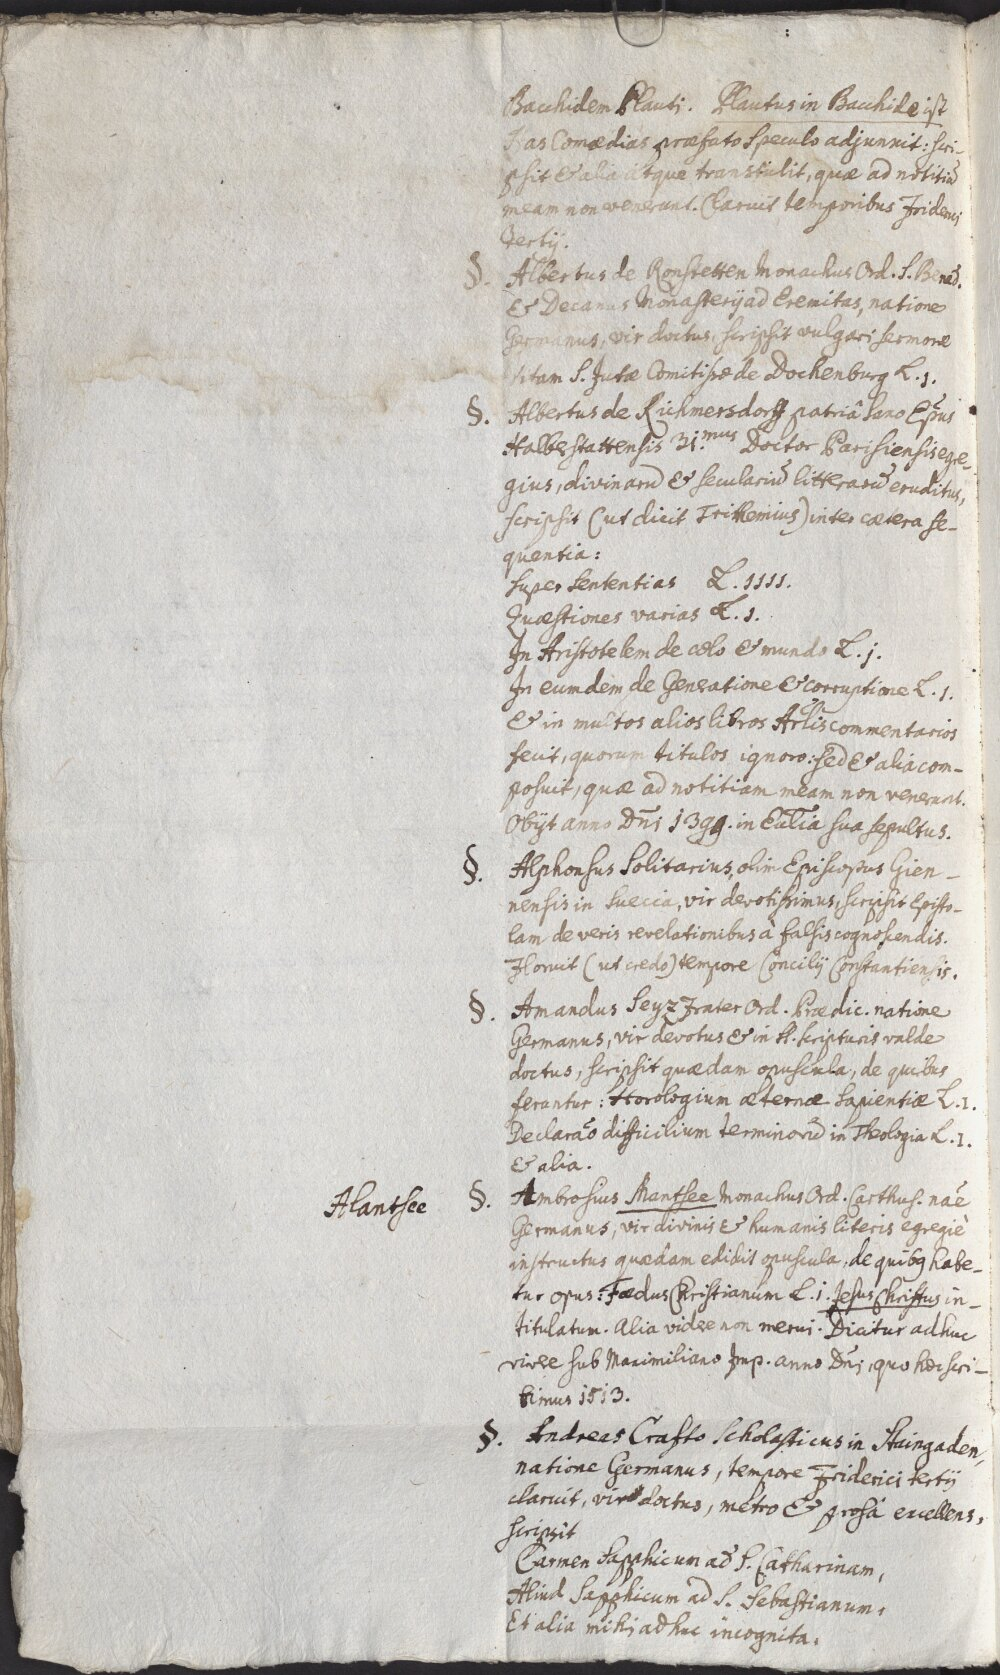 Bacchidem Plauti. Plautus in Bacchide ist
Has Comœdias præfato Speculo adjunxit: scri-
psit & alia atque transtulit, quæ ad notitiã
meam non venerunt. Claruit temporibus Friderici
Tertij.
§. Albertus de Bonstetten Monachus Ord. S. Bened.
& Decanus Monasterij ad Eremitas, natione
Germanus, vir doctus, scripsit vulgari sermone
vitam S. Jutæ Comitissæ de Dockenburg L. 1.
§. Albertus de Richmersdorff patriâ Saxo Ep̃us
Halberstattensis 31.mus Doctor Parisiensis egre-
gius, divinarũ & seculariũ litterarũ eruditus,
scripsit (ut dicit Trithemius) inter cætera se-
quentia:
Super Sententias L. 1111.
Quæstiones varias L. 1.
In Aristotelem de cœlo & mundo L. j.
In eumdem de Generatione & corruptione L. 1.
& in multos alios libros Arĩlis commentarios
fecit, quorum titulos ignoro: sed & alia com-
posuit, quæ ad notitiam meam non venerunt.
Obijt anno Dñi 1399. in Ecc̃lia sua sepultus.
§. Alphonsus Solitarius, olim Episcopus Gien-
nensis in Suecia, vir devotissimus, scripsit Episto-
lam de veris revelationibus à falsis cognoscendis.
Floruit (ut credo) tempore Concilij Constantiensis.
§. Amandus Seyz Frater Ord. Prædic. natione
Germanus, vir devotus & in SS. scripturis valde
doctus, scripsit quædam opuscula, de quibus
ferantur: Horologium æternæ Sapientiæ L. 1.
Declarão difficilium terminorũ in Theologia L. 1.
& alia.
Alantsee §. Ambrosius Mantsee Monachus Ord. Carthus. naẽ
Germanus, vir divinis & humanis literis egregiè
instructus quædam edidit opuscula, de quibq habe-
tur opus: Fœdus Christianum L. i. Jesus Christus in-
titulatum. Alia videre non merui. Dicitur adhuc
vivere sub Maximiliano Imp. anno Dñi, quo hæc scri-
bimus 1513.
§. Andreas Crafto Scholasticus in Staingaden,
natione Germanus, tempore Friderici tertij
claruit, vir doctus, metro & prosâ excellens,
scripsit
Carmen Sapphicum ad S. Catharinam,
Aliud Sapphicum ad S. Sebastianum,
Et alia mihi adhuc incognita.